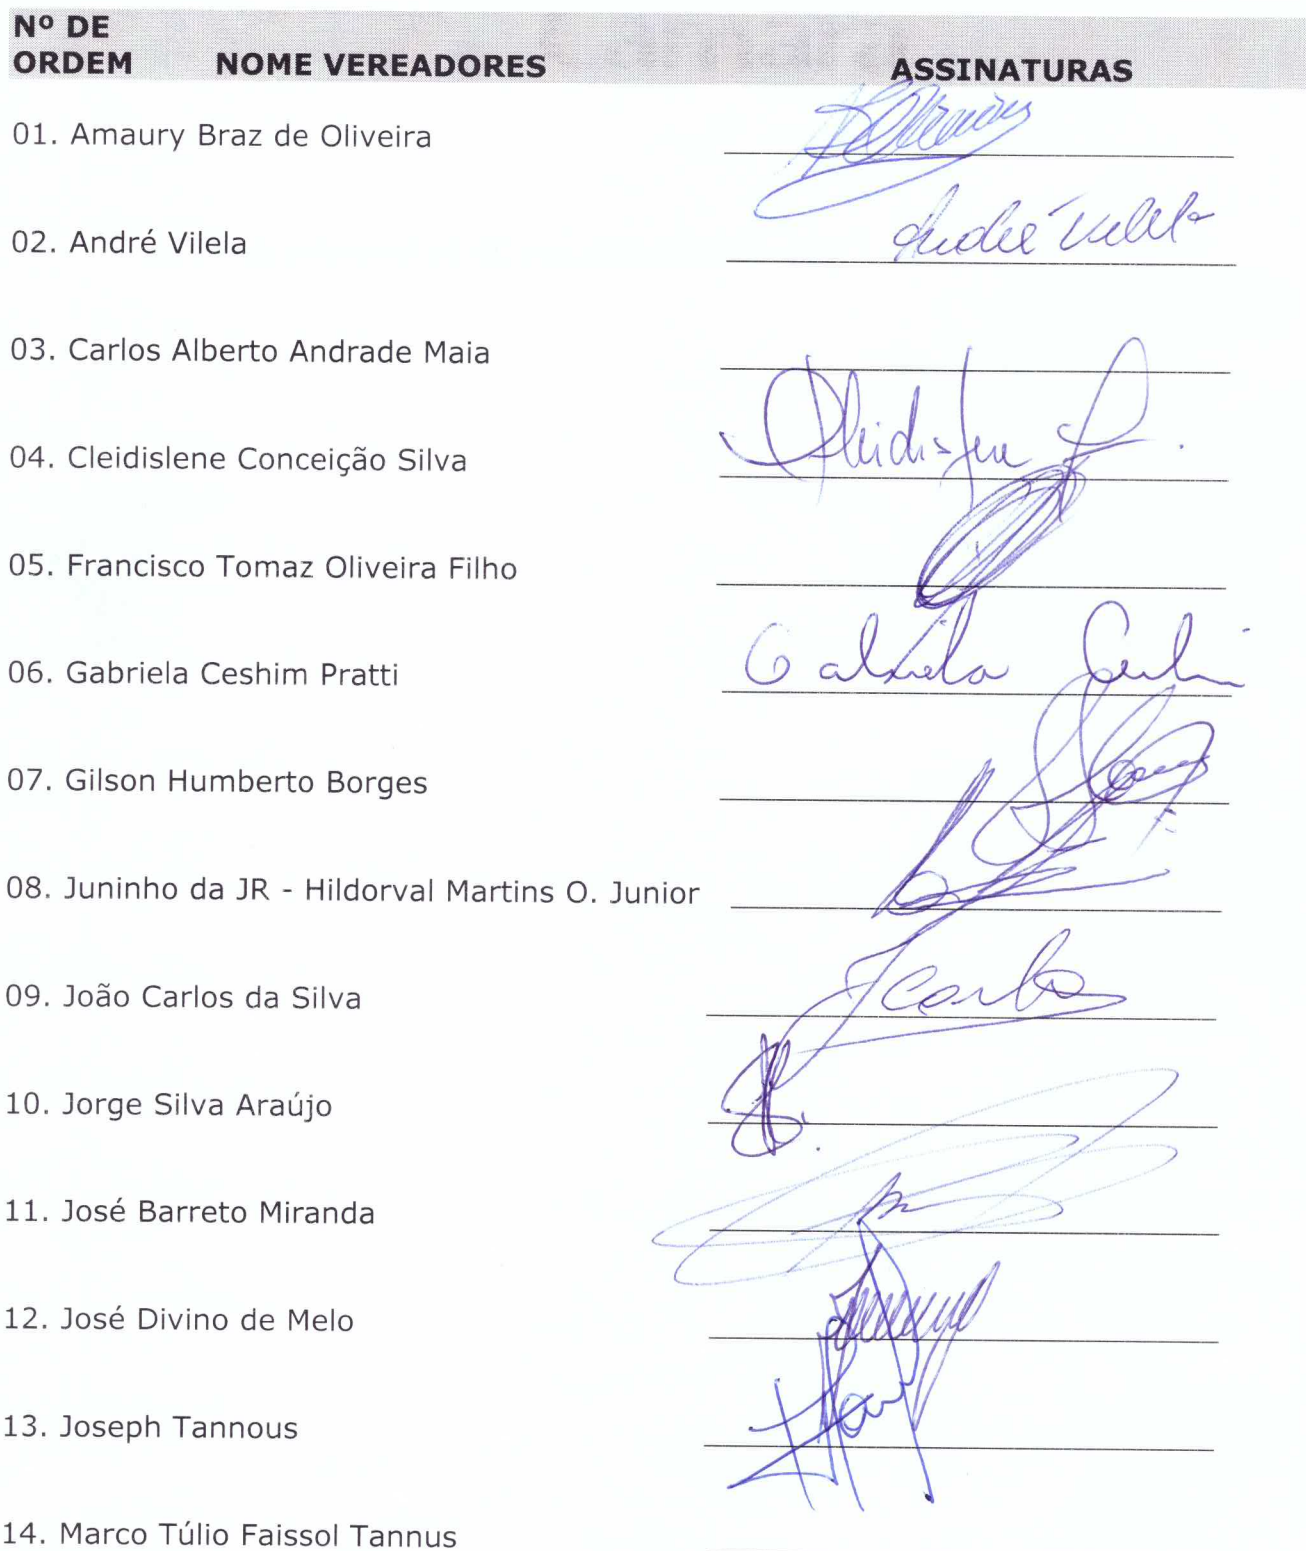 Nº DE
ORDEM NOME VEREADORES ASSINATURAS
01. Amaury Braz de Oliveira
02. André Vilela André Vilela
03. Carlos Alberto Andrade Maia
04. Cleidislene Conceição Silva
05. Francisco Tomaz Oliveira Filho
06. Gabriela Ceshim Pratti Gabriela
07. Gilson Humberto Borges
08. Juninho da JR - Hildorval Martins O. Junior
09. João Carlos da Silva JCarlos
10. Jorge Silva Araújo
11. José Barreto Miranda
12. José Divino de Melo
13. Joseph Tannous
14. Marco Túlio Faissol Tannus